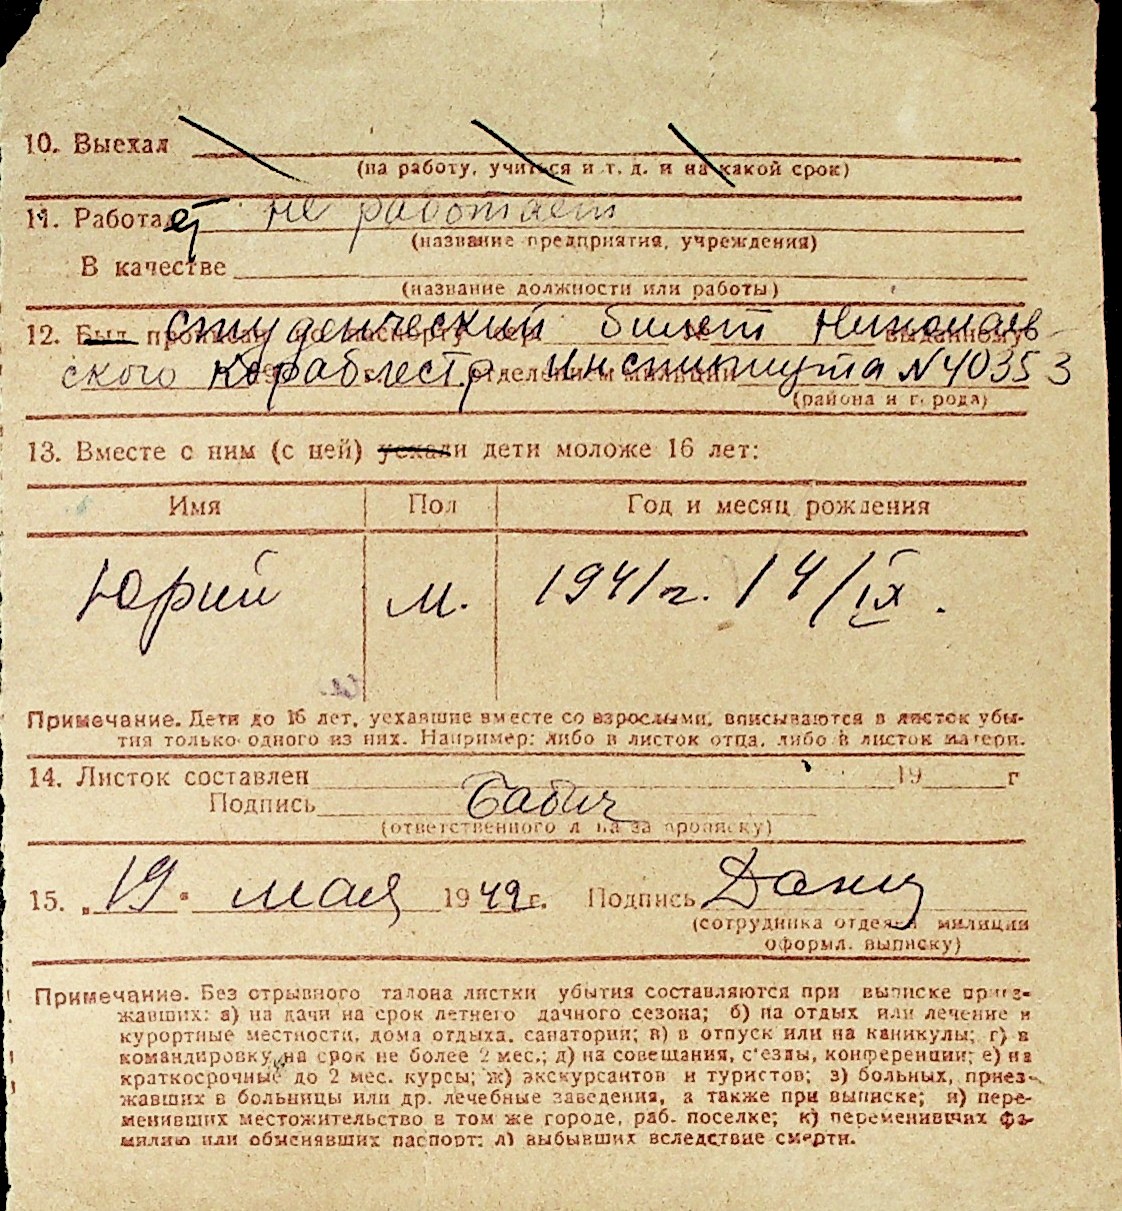 10. Выехал
(на работу, учиться и т. д. и на какой срок)
11. Работает не работает
(название предприятия, учреждения)
В качестве
(название должности или работы)
12. Был прописан по паспорту серии № выданному
студенческий билет Николаев-
ского Кораблестр. Института N 40353
отделением милиции
(района и города)
13. Вместе с ним (с ней) уехали дети моложе 16 лет:
Имя Пол Год и месяц рождения
Юрий м. 1941 г. 14/IX.
Примечание. Дети до 16 лет, уехавшие вместе со взрослыми, вписываются в листок убы-
тия только одного из них. Например: либо в листок отца, либо в листок матери.
14. Листок составлен 19 г
Подпись Бабич
(ответственного лица за прописку)
15. „19" мая 1949 г. Подпись
(сотрудника отдел. милиции
оформл. выписку)
Примечание. Без отрывного талона листки убытия составляются при выписке приез-
жавших: а) на дачи на срок летнего дачного сезона; б) на отдых или лечение в
курортные местности, дома отдыха, санатории; в) в отпуск или на каникулы; г) в
командировку на срок не более 2 мес.; д) на совещания, с'езды, конференции; е) на
краткосрочные до 2 мес. курсы; ж) экскурсантов и туристов; з) больных, приез-
жавших в больницы или др. лечебные заведения, а также при выписке; и) пере-
менивших местожительство в том же городе, раб. поселке; к) переменивших фа-
милию или обменявших паспорт; л) выбывших вследствие смерти.